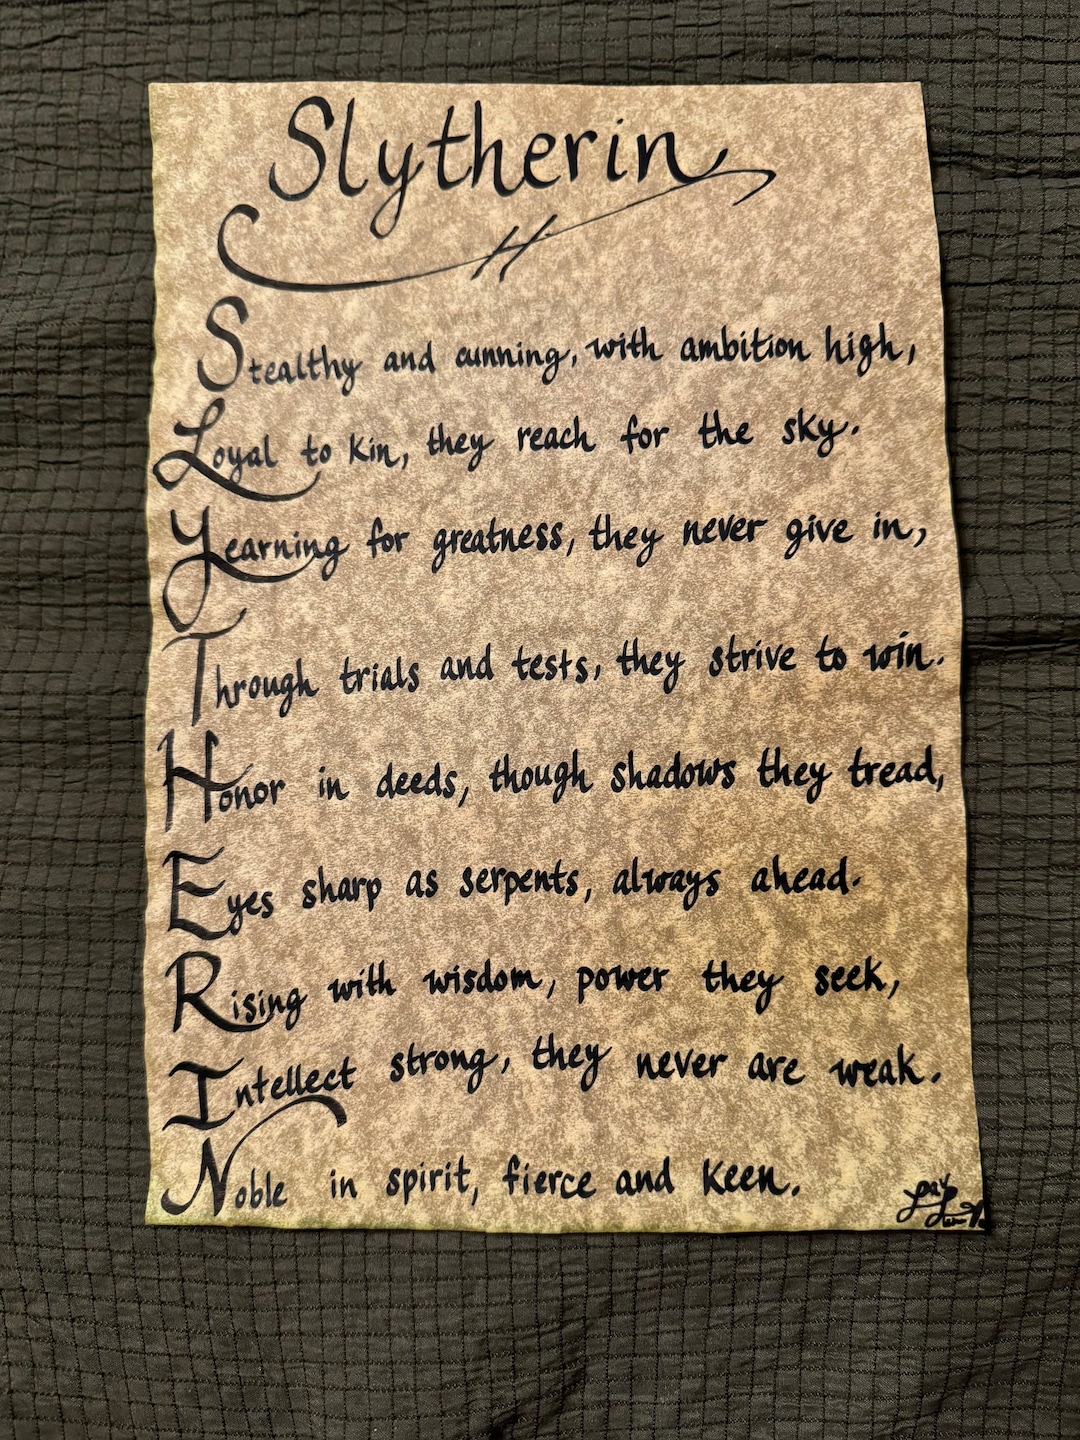 Slytherin
Stealthy and cunning, with ambition high,
Loyal to Kin, they reach for the sky.
Yearning for greatness, they never give in,
Through trials and tests, they strive to win.
Honor in deeds, though shadows they tread,
Eyes sharp as serpents, always ahead.
Rising with wisdom, power they seek,
Intellect strong, they never are weak.
Noble in spirit, fierce and Keen.